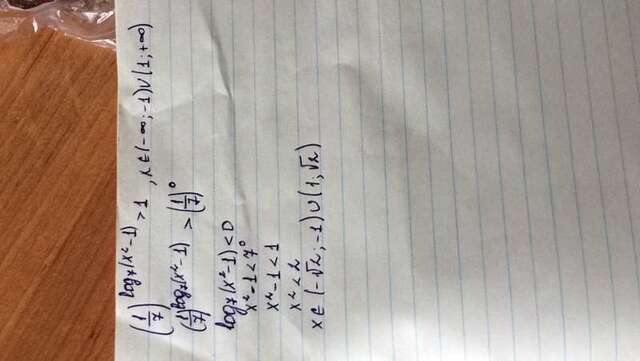 (1/7)^log₇(x²-1) > 1 , x∈(-∞;-1)∪(1;+∞)
(1/7)^log₇(x²-1) > (1/7)⁰
log₇(x²-1) < 0
x²-1 < 7⁰
x²-1 < 1
x² < 2
x∈(-√2;-1)∪(1;√2)